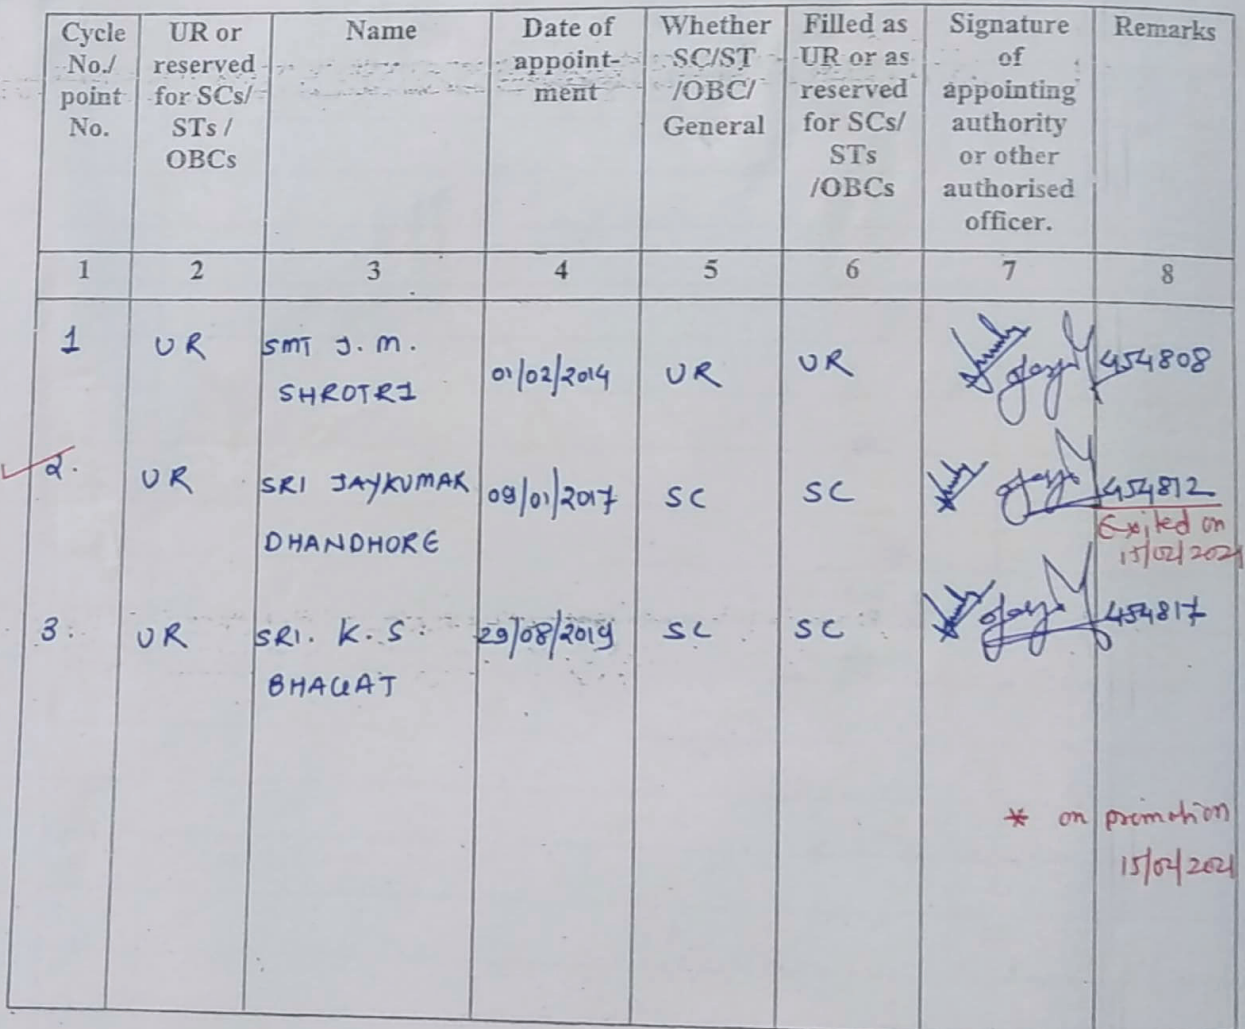 Cycle No./ point No.
UR or reserved for SCs/ STs / OBCs
Name
Date of appoint- ment
Whether SC/ST /OBC/ General
Filled as UR or as reserved for SCs/ STs /OBCs
Signature of appointing authority or other authorised officer.
Remarks
1 2 3 4 5 6 7 8
1 UR SMT J. M. 01/02/2014 UR UR 454808
SHROTRI
2. UR SRI JAYKUMAR 09/01/2017 SC SC 454812
DHANDHORE Exited on
15/02/2021
3. UR SRI. K. S. 29/08/2019 SC SC 454817
BHAGAT
* on promotion
15/02/2021